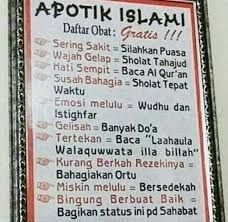 APOTIK ISLAMI
Daftar Obat: Gratis !!!
Sering Sakit = Silahkan Puasa
Wajah Gelap = Sholat Tahajud
Hati Sempit = Baca Al Qur'an
Susah Bahagia = Sholat Tepat
Waktu
Emosi melulu = Wudhu dan
Istighfar
Gelisan = Banyak Do'a
Tertekan = Baca "Laahaula
Walaquwwata illa billah"
Kurang Berkah Rezekinya =
Bahagiakan Ortu
Miskin melulu = Bersedekah
Bingung Berbuat Baik =
Bagikan status ini pd Sahabat